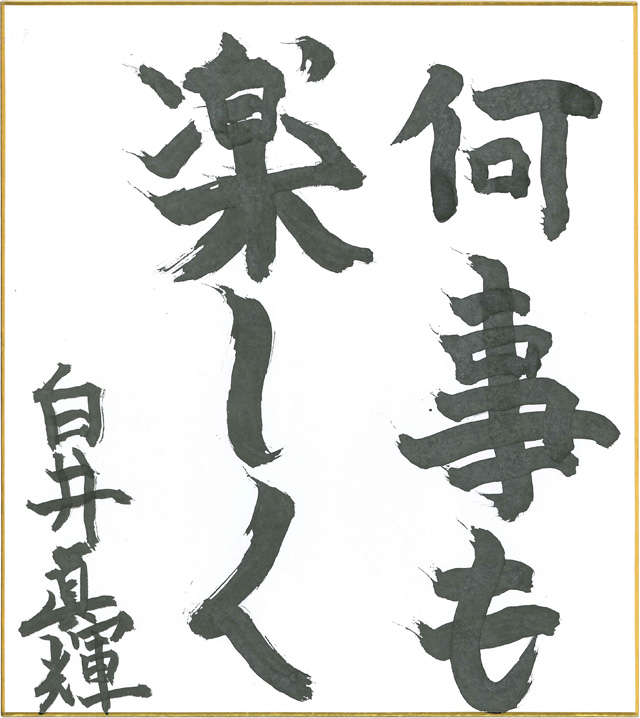 何事も
楽しく
白井真輝